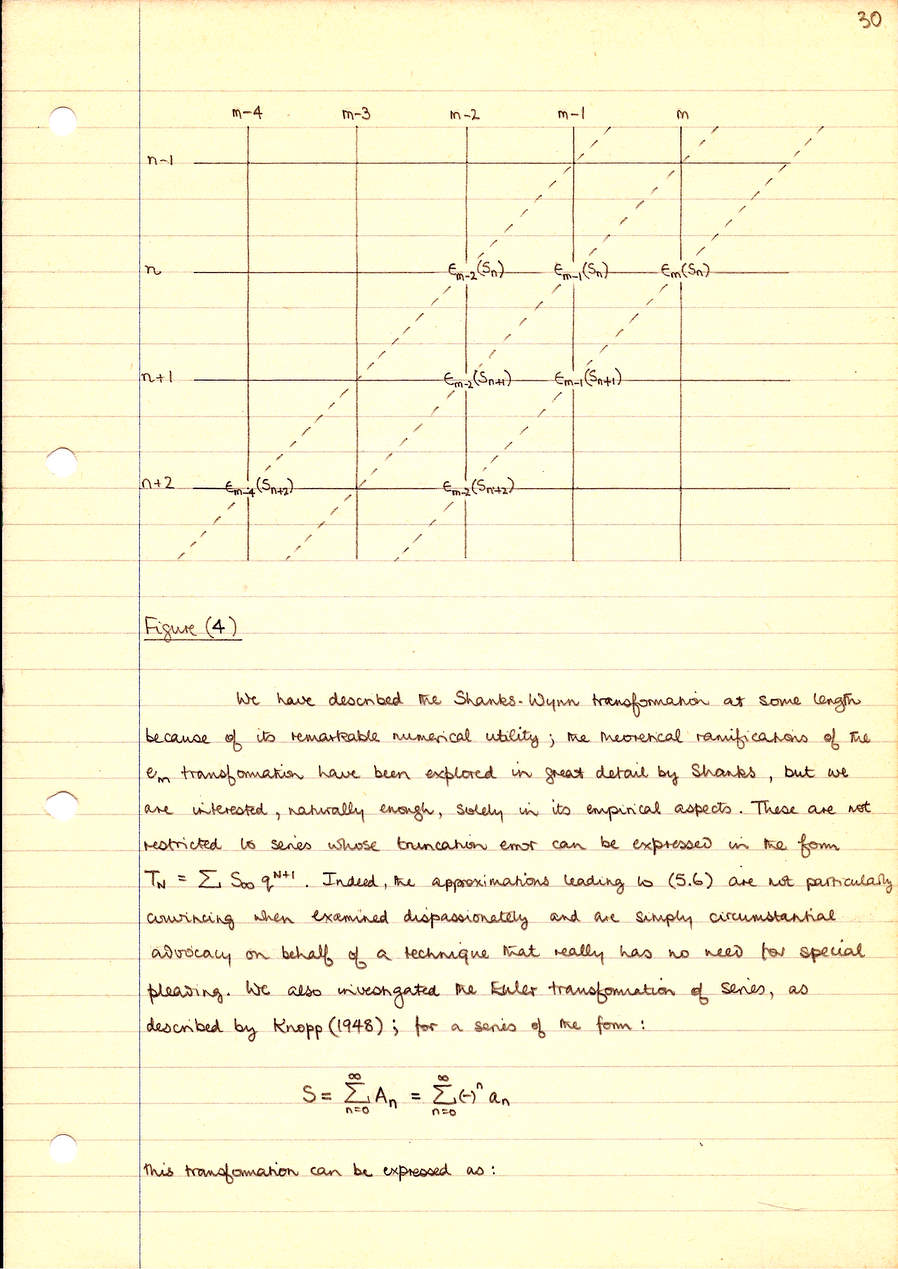 30
m-4 m-3 m-2 m-1 m
n-1
n ϵ_{m-2}(S_n) ϵ_{m-1}(S_n) ϵ_m(S_n)
n+1 ϵ_{m-2}(S_{n+1}) ϵ_{m-1}(S_{n+1})
n+2 ϵ_{m-4}(S_{n+2}) ϵ_{m-2}(S_{n+2})
Figure (4)
We have described the Shanks-Wynn transformation at some length
because of its remarkable numerical utility ; the theoretical ramifications of the
e_m transformation have been explored in great detail by Shanks , but we
are interested , naturally enough, solely in its empirical aspects. These are not
restricted to series whose truncation error can be expressed in the form
T_N = ∑ S_∞ q^{N+1} . Indeed, the approximations leading to (5.6) are not particularly
convincing when examined dispassionately and are simply circumstantial
advocacy on behalf of a technique that really has no need for special
pleading. We also investigated the Euler transformation of series, as
described by Knopp (1948) ; for a series of the form :
S = ∑_{n=0}^{∞} A_n = ∑_{n=0}^{∞} (-)^n a_n
this transformation can be expressed as :